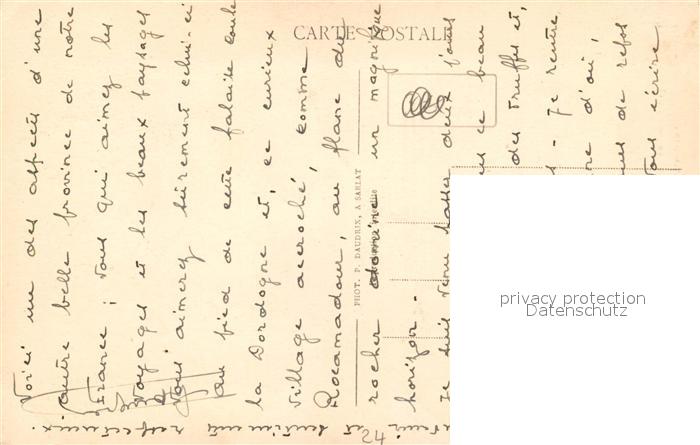 CARTE POSTALE
PHOT. P. DAUDRIX, A SARLAT
Voici un des aspects d'une
autre belle province de notre
France ; Vous qui aimez les
voyages et les beaux paysages
Vous aimerez sûrement celui-ci
au pied de cette falaise coule
la Dordogne et, ce curieux
village accroché, comme
Rocamadour, au flanc du
rocher domine un magnifique
horizon -
Je suis venu passer deux jours
ce beau
des truffes et,
- Je rentre
d'où,
de repos
Vous écrire
sentiments
respectueux.
24
privacy protection
Datenschutz